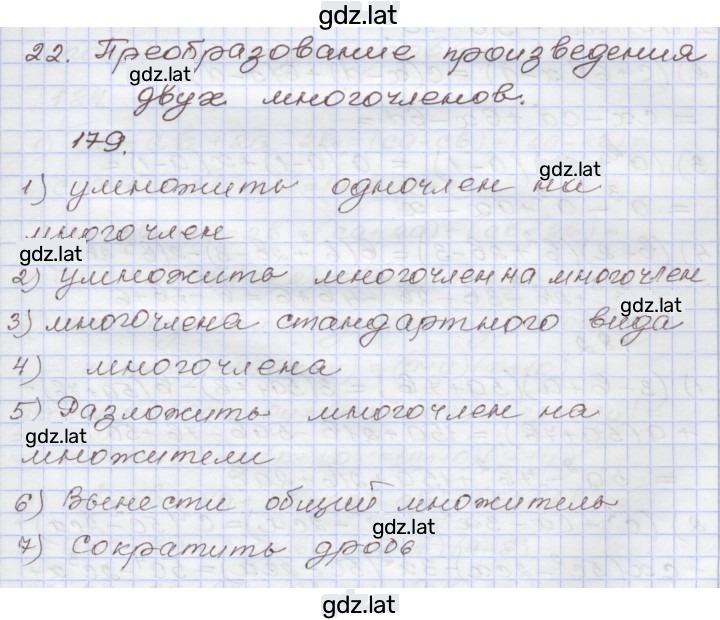 gdz.lat
22. Преобразование произведения
gdz.lat
двух многочленов.
179.
gdz.lat
1) умножить одночлен на
многочлен
gdz.lat
2) умножить многочлен на многочлен
gdz.lat
3) многочлена стандартного вида
4) многочлена
5) Разложить многочлен на
gdz.lat
множители
6) Вынести общий множитель
gdz.lat
7) сократить дробь
gdz.lat